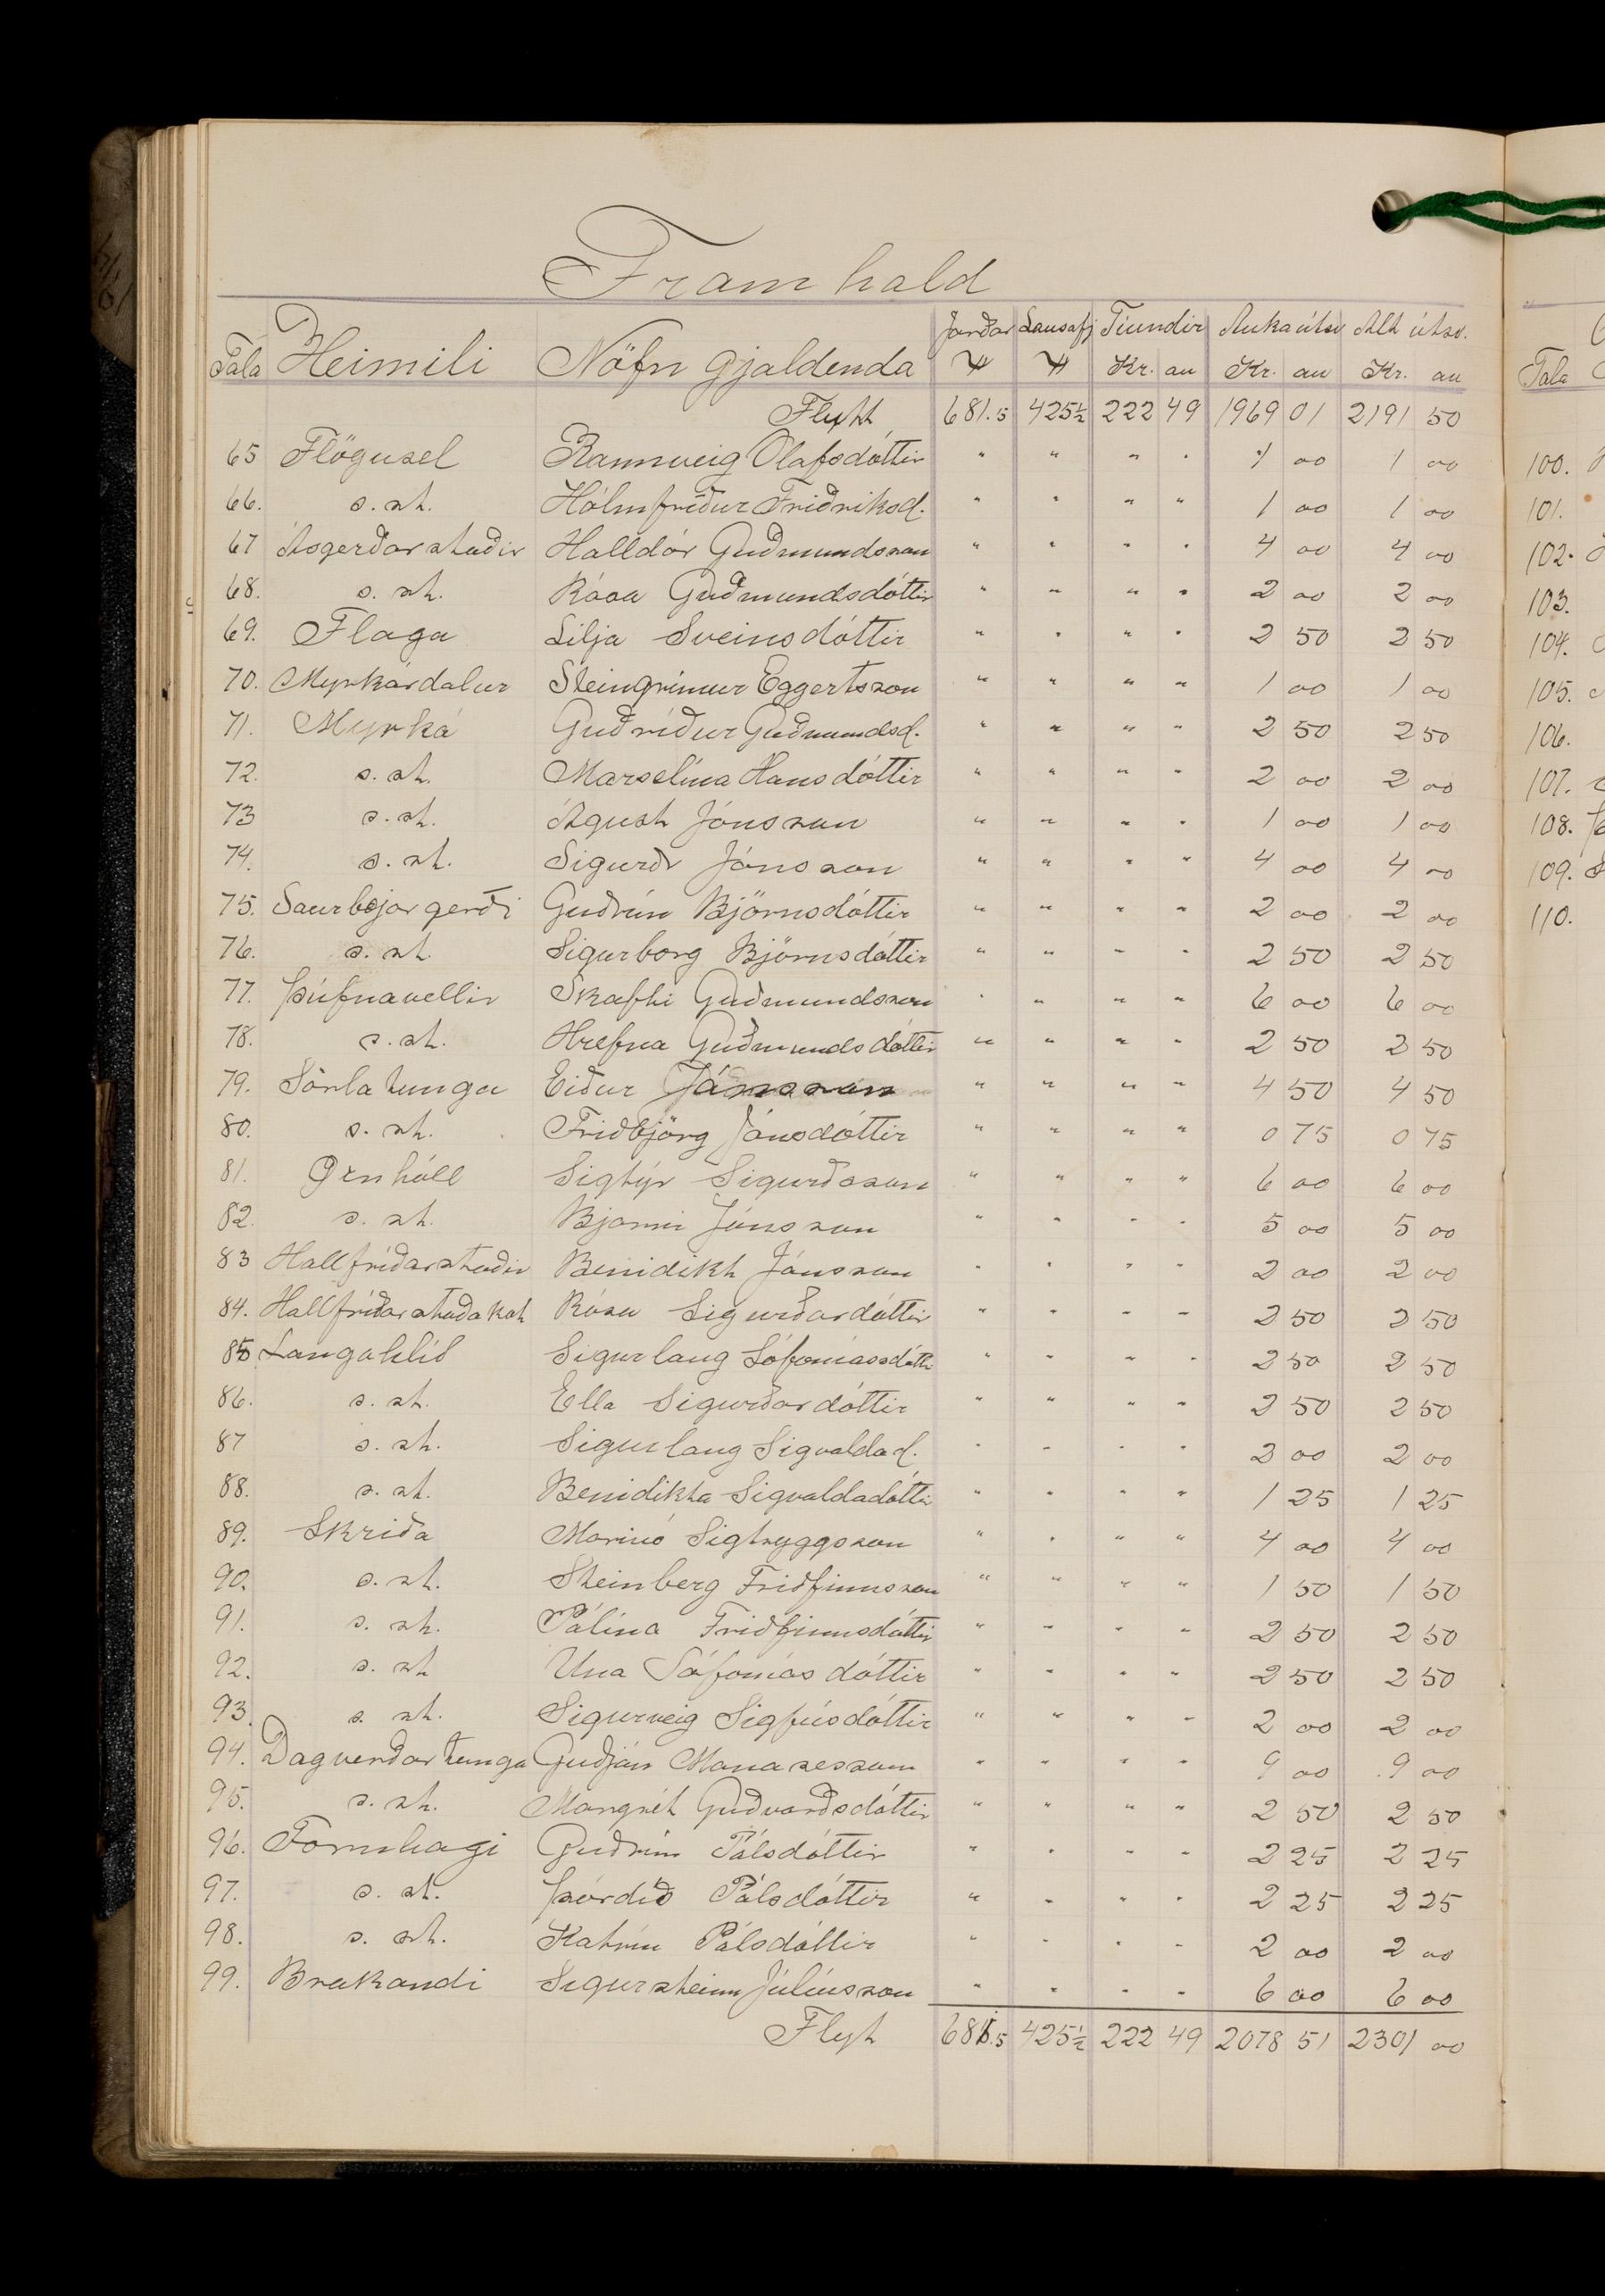 Framhald
Tala Heimili Nöfn gjaldenda Jarðar Lausafj Tíundir Auka útsv Alt útsv.
Kr. au Kr. au Kr. au
Flutt 681.5 425½ 222 49 1969 01 2191 50
65 Flögusel Rannveig Olafsdóttir " " " " 1 00 1 00
66. s. st. Hólmfríður Friðriksd. " " " " 1 00 1 00
67 Ásgerðarstaðir Halldór Guðmundsson " " " " 4 00 4 00
68. s. st. Rósa Guðmundsdóttir " " " " 2 00 2 00
69. Flaga Lilja Sveinsdóttir " " " " 2 50 2 50
70. Myrkárdalur Steingrímur Eggertsson " " " " 1 00 1 00
71. Myrká Guðríður Guðmundsd. " " " " 2 50 2 50
72. s. st. Marselína Hansdóttir " " " " 2 00 2 00
73 s. st. Águst Jónsson " " " " 1 00 1 00
74. s. st. Sigurðr Jónsson " " " " 4 00 4 00
75. Saurbæjargerði Guðrún Björnsdóttir " " " " 2 00 2 00
76. s. st. Sigurborg Björnsdóttir " " " " 2 50 2 50
77. Þúfnavellir Skafti Guðmundsson " " " " 6 00 6 00
78. s. st. Hrefna Guðmundsdóttir " " " " 2 50 2 50
79. Sörlatunga Eiður Jónsson " " " " 4 50 4 50
80. s. st. Friðbjörg Jónsdóttir " " " " 0 75 0 75
81. Gznhóll Sigtýr Sigurðsson " " " " 6 00 6 00
82. s. st. Bjarni Jónsson " " " " 5 00 5 00
83 Hallfríðarstaðir Benidikt Jónsson " " " " 2 00 2 00
84. Hallfríðarstaðakot Rósa Sigurðardóttir " " " " 2 50 2 50
85 Langahlíð Sigurlaug Sófoníasdóttir " " " " 2 50 2 50
86. s. st. Ella Sigurðardóttir " " " " 2 50 2 50
87 s. st. Sigurlaug Sigvaldad. " " " " 2 00 2 00
88. s. st. Benidikta Sigvaldadóttir " " " " 1 25 1 25
89. Skriða Marinó Sigtryggsson " " " " 4 00 4 00
90. s. st. Steinberg Friðfinnsson " " " " 1 50 1 50
91. s. st. Pálína Friðfinnsdóttir " " " " 2 50 2 50
92. s. st Una Sófoníasdóttir " " " " 2 50 2 50
93. s. st. Sigurveig Sigfúsdóttir " " " " 2 00 2 00
94. Dagverðartunga Guðján Manasesson " " " " 9 00 9 00
95. s. st. Margrét Guðvarðsdóttir " " " " 2 50 2 50
96. Fornhagi Guðrún Pálsdóttir " " " " 2 25 2 25
97. s. st. Þórdís Pálsdóttir " " " " 2 25 2 25
98. s. st. Katrín Pálsdóttir " " " " 2 00 2 00
99. Brakandi Sigursteinn Júlíusson " " " " 6 00 6 00
Flyt 681.5 425½ 222 49 2078 51 2301 00
Tala
100.
101.
102.
103.
104.
105.
106.
107.
108.
109.
110.